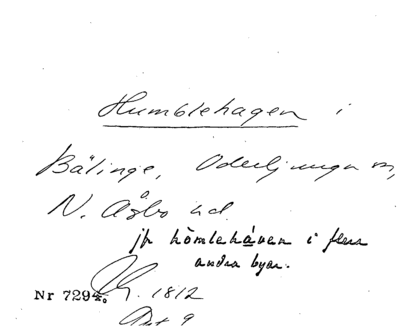 Humblehagen i
Bälinge, Oderljunga sn,
N. Åsbo hd.
jfr hömlehåven i flera
andra byar.
Nr 7294.
1812
Akt 9